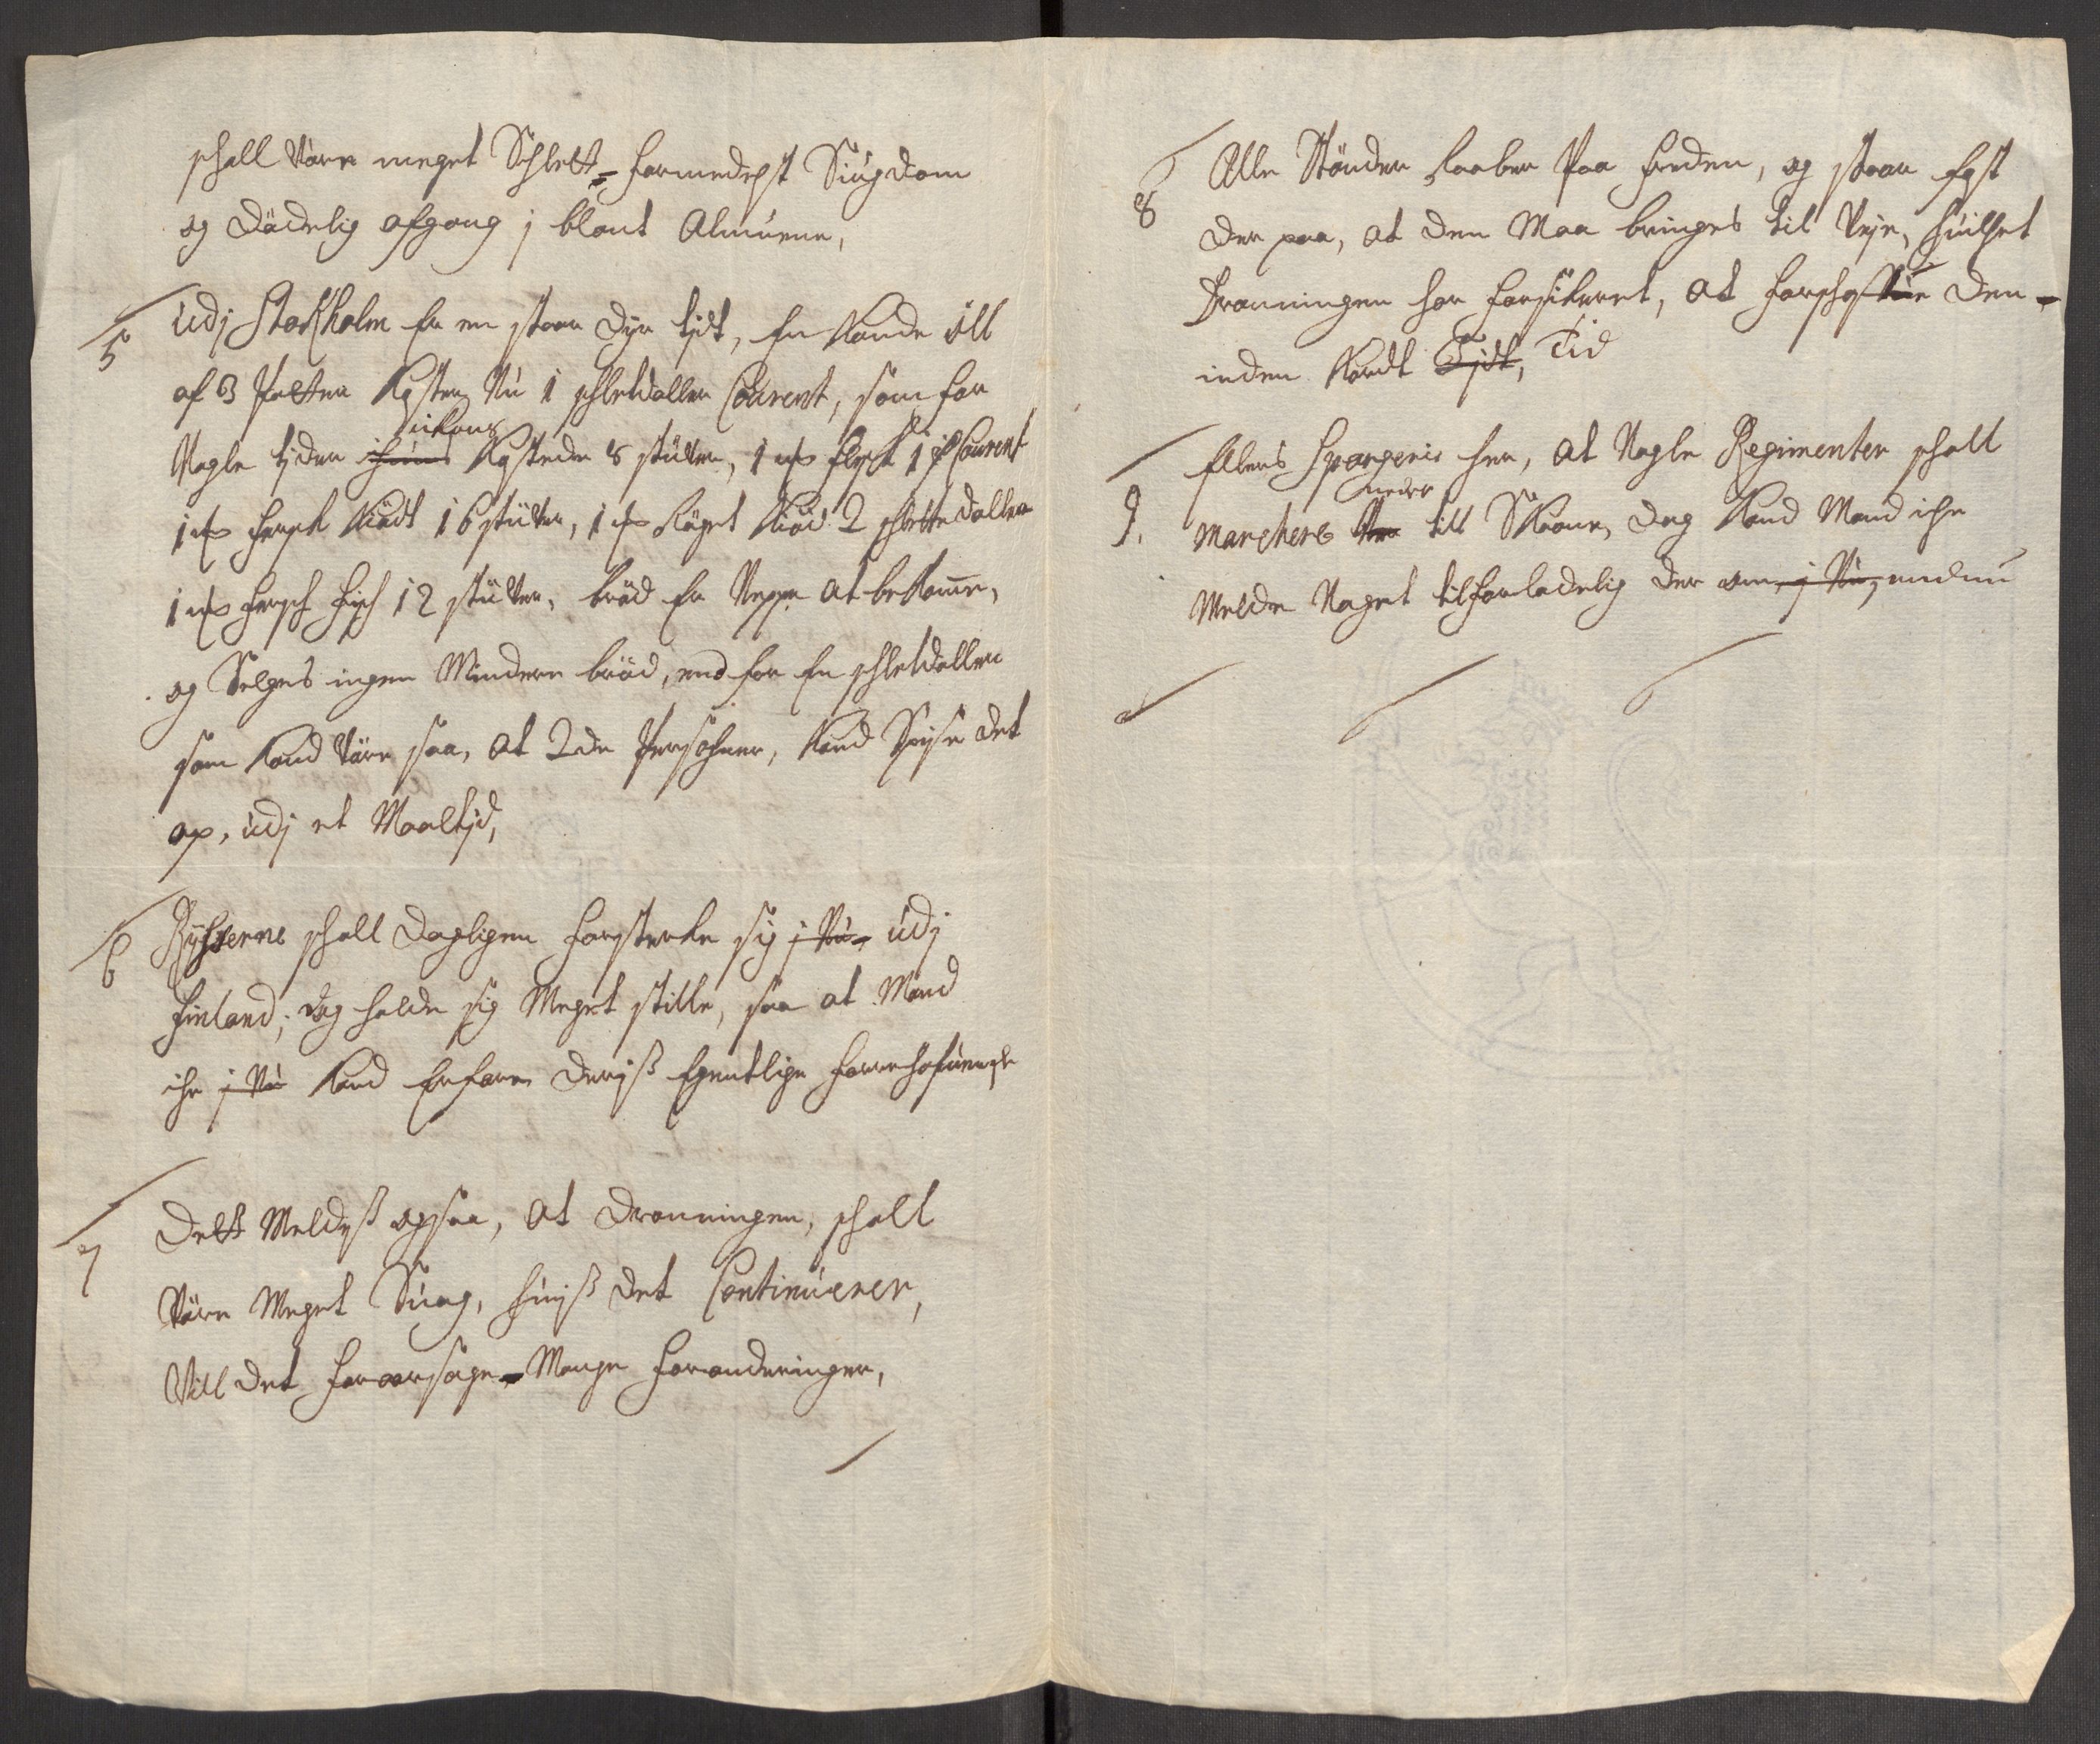 schall være meget Schlett - formedelst Siugdom
og Dödelig afgang j blant Almuene,
5
udj Stokholm Er en stoer Dyr tydt, En Kande öll
af 3 Potter Koster Nu 1 schletdaller Courent, som for
ickons
Nogle tjder Kostede 8 stüver, 1 ɱ flesk 1 Courent
1 ɱ fersk Kiödt 16 stüver, 1 ɱ Röget Kiöd 2 schlette daller
1 ɱ fersch fisch 12 stüver, bröd Er Neppe at bekomme,
og Selges ingen Mindere bröd, end for En schletdaller
som Kand være saa, at 2de Persohner, Kand Spise det
op, udj et Maaltjd,
6
Rysserne schall Dagligen forsterke sig j Nu udj
finland; Dog holde sig Meget stille, saa at Mand
iche j Nu Kand Erfare Deriß Egentlige forrehafvende
7
Dett Meldyß ogsaa, at Dronningen, schall
være Meget Suag, huiß det Continuerer,
Vill det foraarsage Mange forandringer,
8
Alle Stænder raaber Paa freden, og staar fast
der paa, at den Maa bringes til Veje, huilchet
Dronningen har forsikeret, at forschaffe den
inden Kordt Tydt, Tid
9.
Ellers Spargeris her, at Nogle Regimenter schall
neder
Marchere till Skaane, dog Kand Mand iche
Melde Noget tilforladelig der om j Nu, endnu